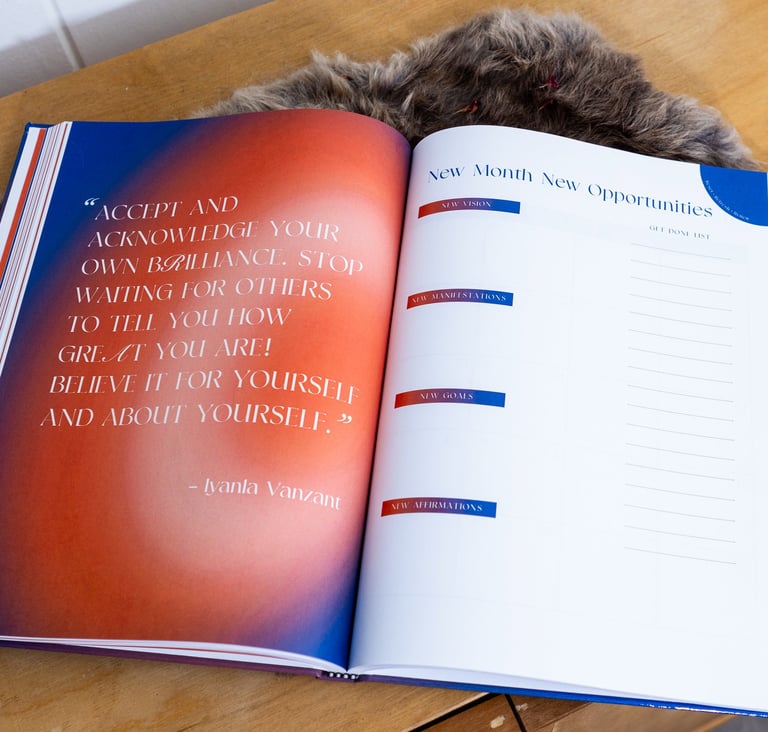 “ACCEPT AND
ACKNOWLEDGE YOUR
OWN BRILLIANCE. STOP
WAITING FOR OTHERS
TO TELL YOU HOW
GREAT YOU ARE!
BELIEVE IT FOR YOURSELF
AND ABOUT YOURSELF.”
– Iyanla Vanzant
New Month New Opportunities
NEW VISION
GET DONE LIST
NEW MANIFESTATIONS
NEW GOALS
NEW AFFIRMATIONS